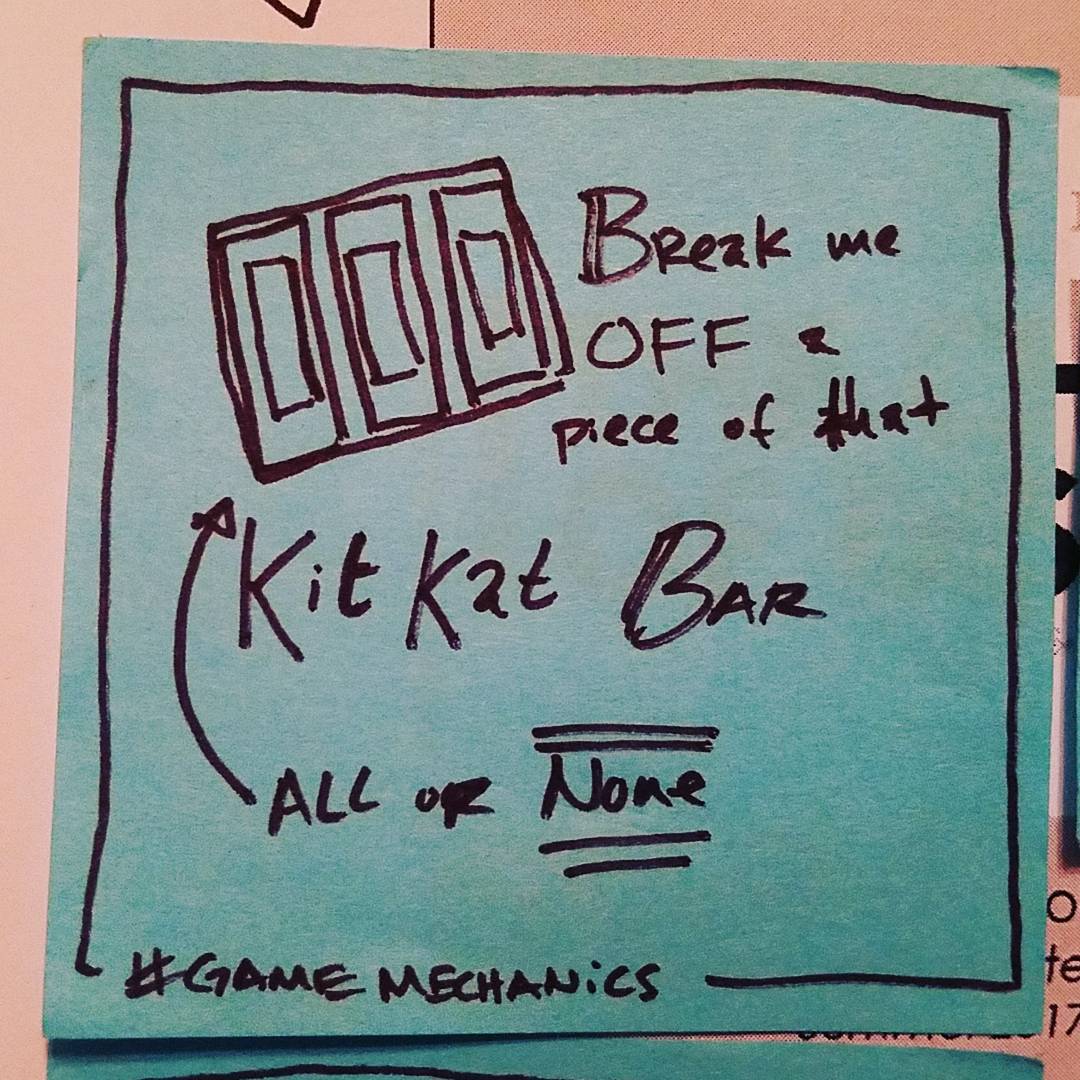 Break me
OFF a
piece of that
Kit Kat BAR
ALL OR None
#GAME MECHANICS
17